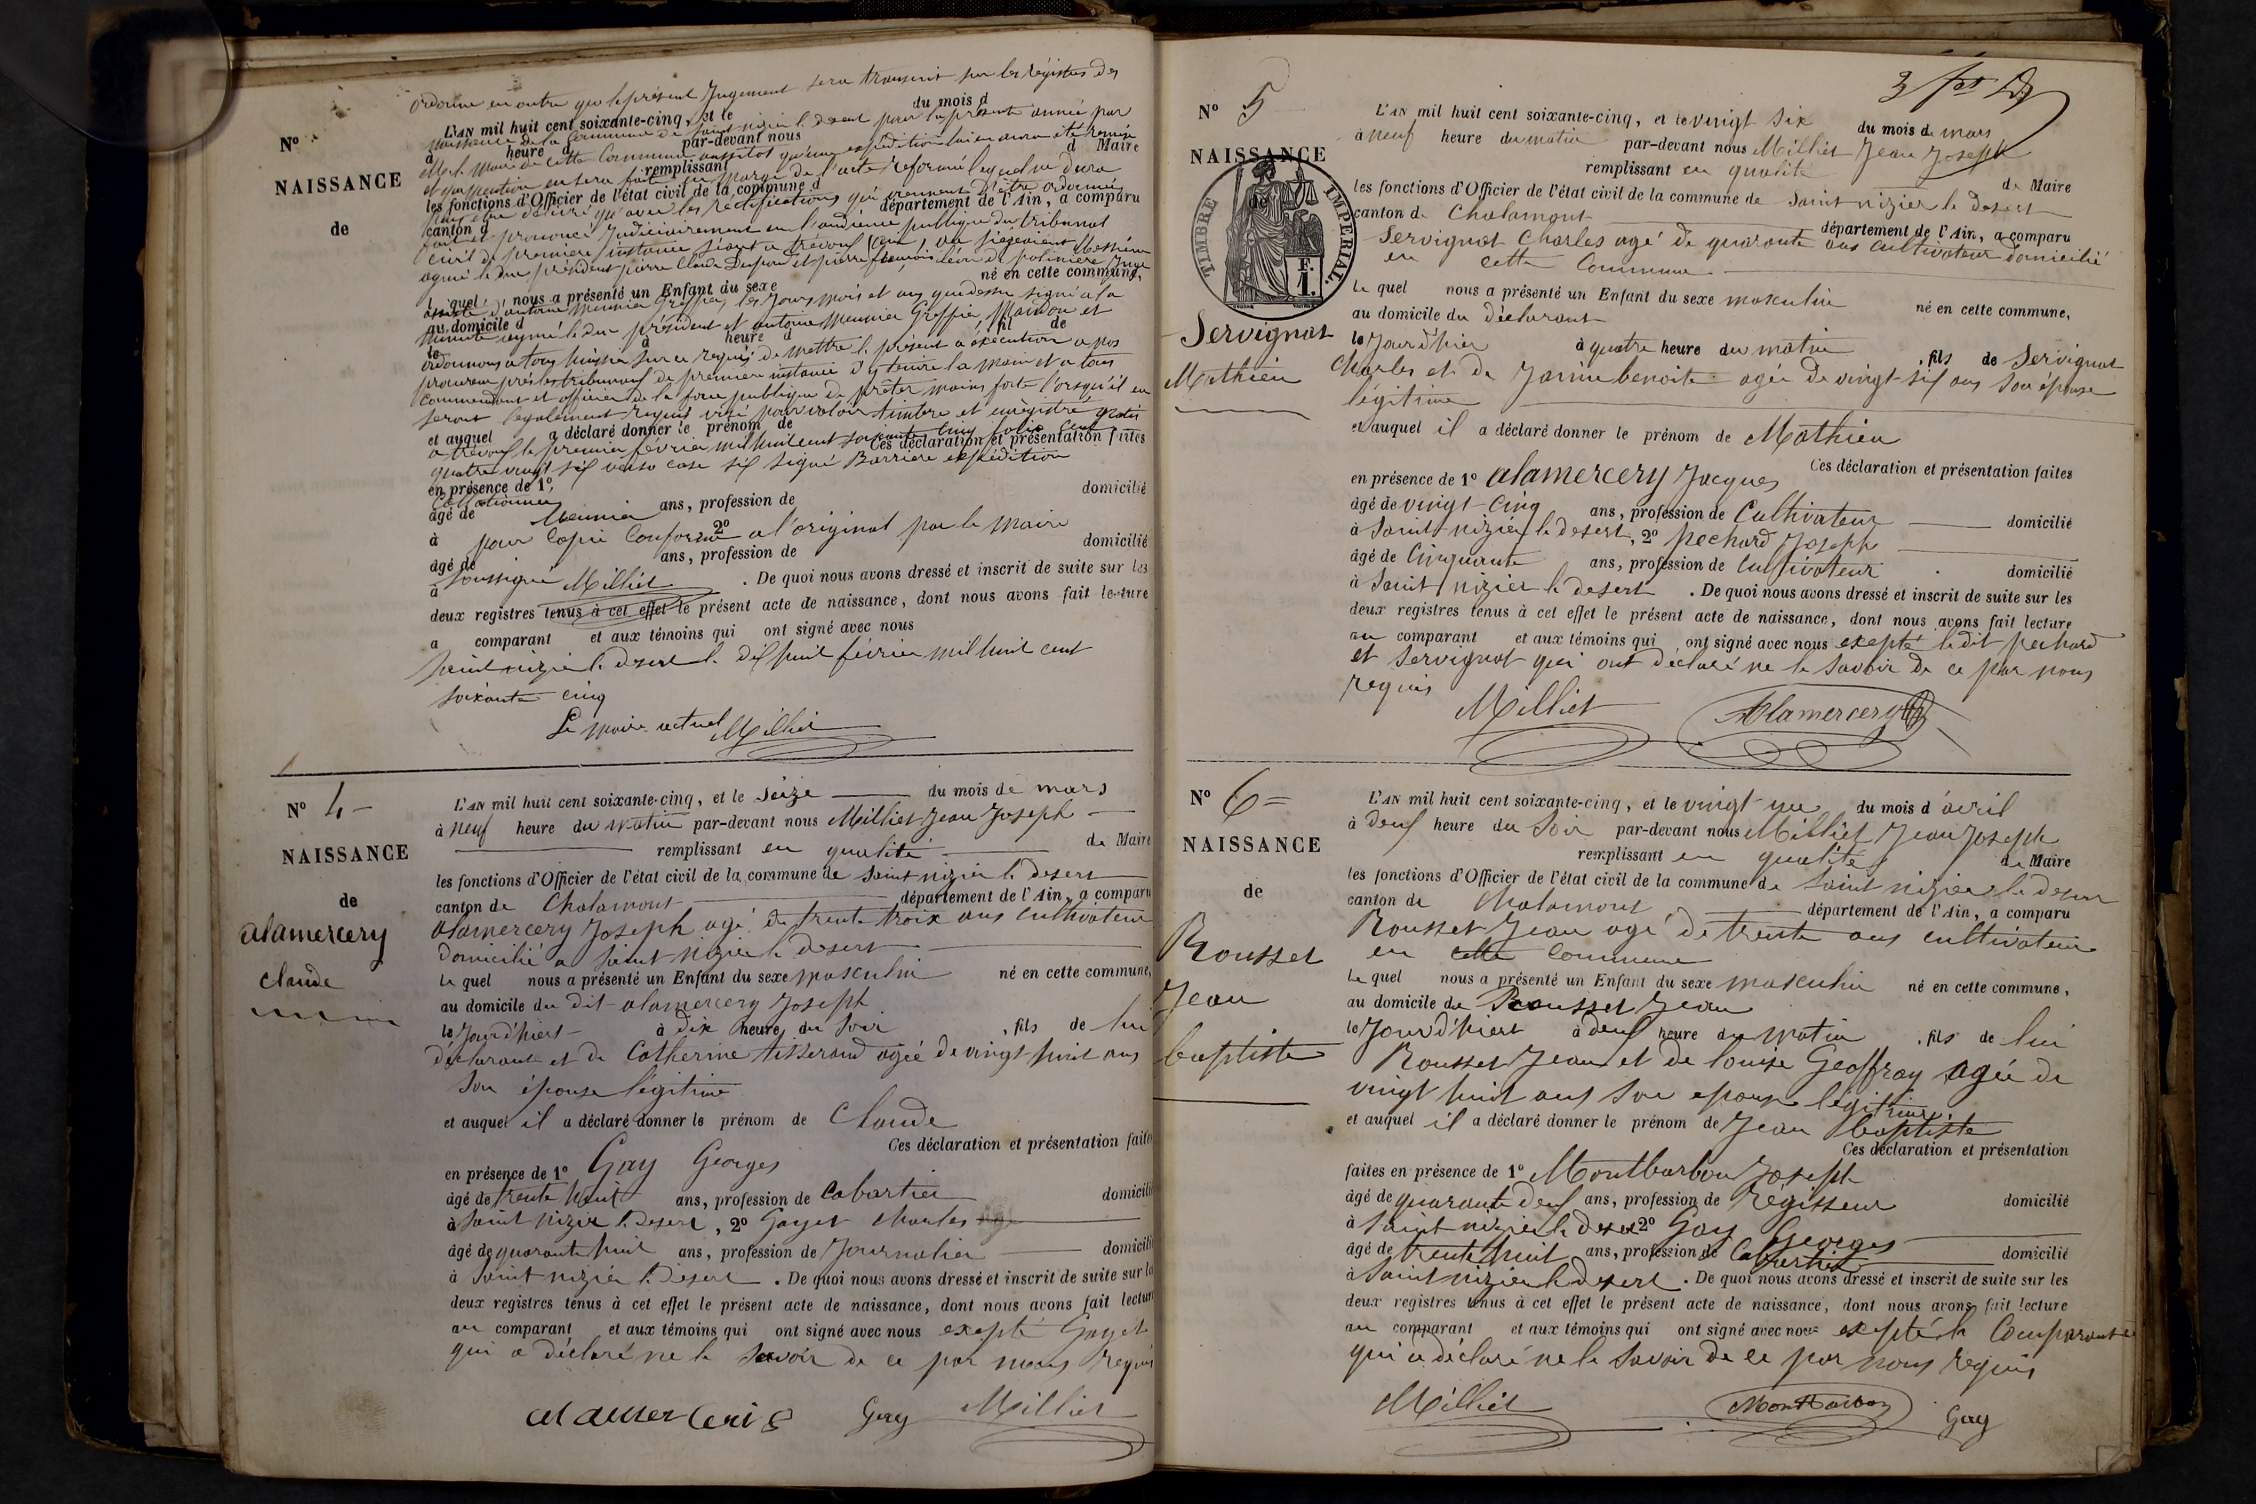 ordonne en outre que le présent Jugement sera transcrit sur les régistres des
No
L'AN mil huit cent soixante-cinq, et le du mois d
naissance de la Commune de Saint nizier le desert pour la présente année par
à heure d par-devant nous
Mr le Maire de cette Commune aussitot qu'une expédition lui en aura été remise
remplissant d Maire
et que mention en sera faite en marge de l'acte réformé lequel ne devra
NAISSANCE
les fonctions d'Officier de l'état civil de la commune d
plus être délivré qu'avec les rectifications qui viennent d'être ordonnées
canton d département de l'Ain, a comparu
de
fait et prononcé Judiciairement en l'audience publique du tribunal
civil de première instance séant a trévoux (ain) où siégeaient Messieurs
président pierre Claude et pierre françois Léon de polinière Juge
né en cette commune,
l quel nous a présenté un Enfant du sexe
assisté d'antoine Meunier Greffier, les Jours mois et an que dessus signé a la
au domicile d
minute président et antoine Meunier Greffier, Mandons et
le à heure d fil de
ordonnons a tous huissiers sur ce requis de mettre le présent a éxécution a nos
procureurs près les tribunaux de première instance d'y tenir la main et a tous
commendant et officiers de la force publique de prêter mains forte lorsqu'il en
seront légalement requis visé pour valoir timbre et enrégistré gratis
et auquel a déclaré donner le prénom de
a trévoux le premier février mil huit cent soixante cinq folio cent
Ces déclaration et présentation faites
quatre vingt six verso case six signé Barriere expédition
en présence de 1º
Collationnée
domicilié
âgé de ans, profession de
Meunier
à 2º
pour Copie Conforme a l'original par le maire
âgé de ans, profession de domicilié
Soussigné Milliet
à . De quoi nous avons dressé et inscrit de suite sur les
deux registres tenus à cet effet le présent acte de naissance, dont nous avons fait lecture
a comparant et aux témoins qui ont signé avec nous
Saint nizier le desert le dix huit février mil huit cent
soixante cinq
Le maire actuel Milliet
No 4
L'AN mil huit cent soixante-cinq, et le Seize du mois de mars
à neuf heure du matin par-devant nous Milliet Jean Joseph
NAISSANCE
remplissant en qualité de Maire
les fonctions d'Officier de l'état civil de la commune de Saint nizier le desert
de
canton de Chalamont département de l'Ain, a comparu
alamercery
alamercery Joseph agé de trente troix ans cultivateur
domicilié a Saint nizier le desert
claude
le quel nous a présenté un Enfant du sexe masculin né en cette commune,
au domicile du dit alamercery Joseph
le Jourd'hiert à dix heure du Soir , fils de lui
déclarant et de Catherine tisserand agée de vingt huit ans
son épouse légitime
et auquel il a déclaré donner le prénom de Claude
Ces déclaration et présentation faites
en présence de 1º Gay Georges
âgé de trente huit ans, profession de Cabartier domicilié
à Saint nizier le Desert, 2º Gayet charles
âgé de quarante huit ans, profession de Journalier domicilié
à Saint nizier le Desert . De quoi nous avons dressé et inscrit de suite sur les
deux registres tenus à cet effet le présent acte de naissance, dont nous avons fait lecture
au comparant et aux témoins qui ont signé avec nous exepté Gayet
qui a déclaré ne le savoir de ce par nous requis
Gay Milliet
3
No 5
L'AN mil huit cent soixante-cinq, et le vingt six du mois de mars
à neuf heure du matin par-devant nous Milliet Jean Joseph
NAISSANCE
remplissant en qualité de Maire
de
les fonctions d'Officier de l'état civil de la commune de Saint nizier le desert
canton de Chalamont département de l'Ain, a comparu
TIMBRE IMPERIAL
F.
1.
Servignat Charles agé de quarante ans cultivateur domicilié
en cette Commune
le quel nous a présenté un Enfant du sexe masculin né en cette commune,
au domicile du déclarant
Servignat
Mathieu
le Jourd'hier à quatre heure du matin , fils de Servignat
Charles et de Janne benoite agée de vingt six ans son épouse
légitime
et auquel il a déclaré donner le prénom de Mathieu
Ces déclaration et présentation faites
en présence de 1º alamercery Jacques
âgé de vingt cinq ans, profession de Cultivateur domicilié
à Saint nizier le desert, 2º pechard Joseph
âgé de Cinquante ans, profession de Cultivateur domicilié
à Saint nizier le desert . De quoi nous avons dressé et inscrit de suite sur les
deux registres tenus à cet effet le présent acte de naissance, dont nous avons fait lecture
au comparant et aux témoins qui ont signé avec nous exepté ledit pechard
et Servignat qui ont déclaré ne le savoir de ce par nous
requis
Milliet Alamercery
No 6
L'AN mil huit cent soixante-cinq, et le vingt un du mois d'avril
à deux heure du Soir par-devant nous Milliet Jean Joseph
NAISSANCE
remplissant en qualité de Maire
les fonctions d'Officier de l'état civil de la commune de Saint nizier le desert
de
canton de Chalamont département de l'Ain, a comparu
Rousset
Rousset Jean agé de trente ans cultivateur
en cette Commune
le quel nous a présenté un Enfant du sexe masculin né en cette commune,
Jean
au domicile de Rousset Jean
le Jourd'hiert à deux heure du matin , fils de lui
baptiste
Rousset Jean et de louise Geoffray agée de
vingt huit ans son epouse légitime
et auquel il a déclaré donner le prénom de Jean baptiste
Ces déclaration et présentation
faites en présence de 1º Montbarbon Joseph
âgé de quarante deux ans, profession de Régisseur domicilié
à Saint nizier le desert 2º Gay Georges
âgé de trente huit ans, profession de Cabartier domicilié
à Saint nizier le desert . De quoi nous avons dressé et inscrit de suite sur les
deux registres tenus à cet effet le présent acte de naissance, dont nous avons fait lecture
au comparant et aux témoins qui ont signé avec nous exepté le Comparant
qui a déclaré ne le savoir de ce par nous requis
Milliet Montbarbon Gay